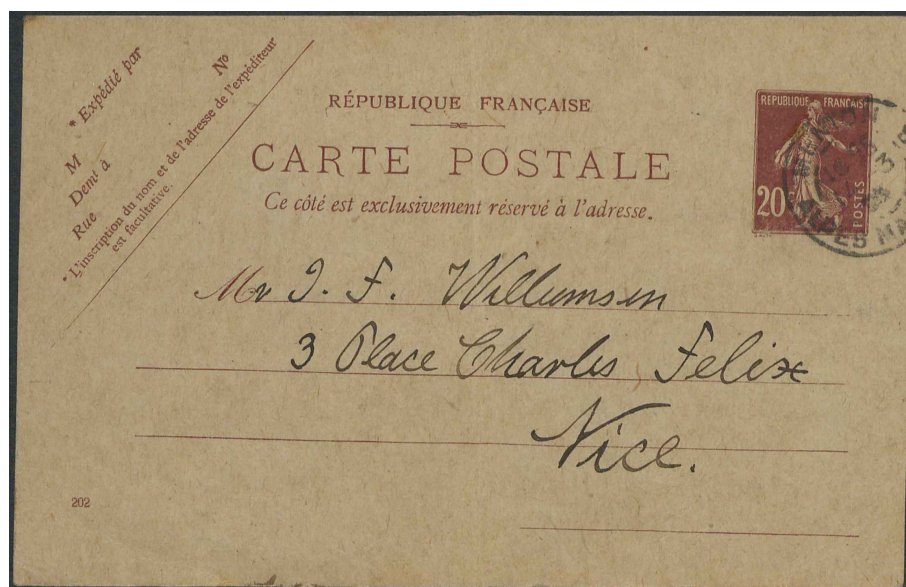 * Expédié par
M
Nº
Demt à
Rue
* L'inscription du nom et de l'adresse de l'expéditeur
est facultative.
RÉPUBLIQUE FRANÇAISE
CARTE POSTALE
Ce côté est exclusivement réservé à l'adresse.
REPUBLIQUE FRANÇAISE
20c
POSTES
MENTON
ALPES MA
Mr J. F. Willumsen
3 Place Charles Felix
Nice.
202